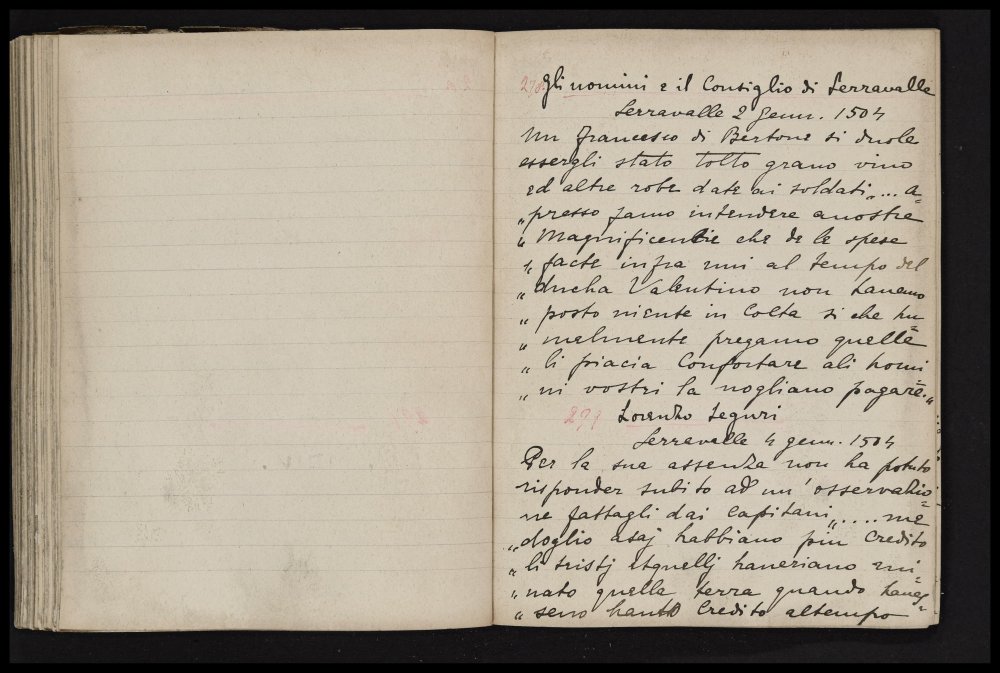 278. gli uomini e il Consiglio di Serravalle
Serravalle 2 Genn. 1504
Un Francesco di Bertone si duole
essergli stato tolto grano vino
ed altre robe date ai soldati „... a=
„presso famo intendere anostre
„ Magnificentie che de le spese
„ facte infra nui al tempo del
„ ducha Valentino non havemo
„ posto niente in Colta si che hu=
„ melmente pregamo quelle
„ li piacia Confortare ali homi=
„ ni vostri la vogliano pagare."
279 Lorenzo Seguri
Serravalle 4 genn. 1504
Per la sua assenza non ha potuto
risponder subito ad un' osservazio=
ne fattagli dai Capitani „....me
„doglio asaj habbiano piu Credito
„ li tristj etquellj haveriano rui=
„ nato quella terra quando haves=
„ seno hauto Credito altempo